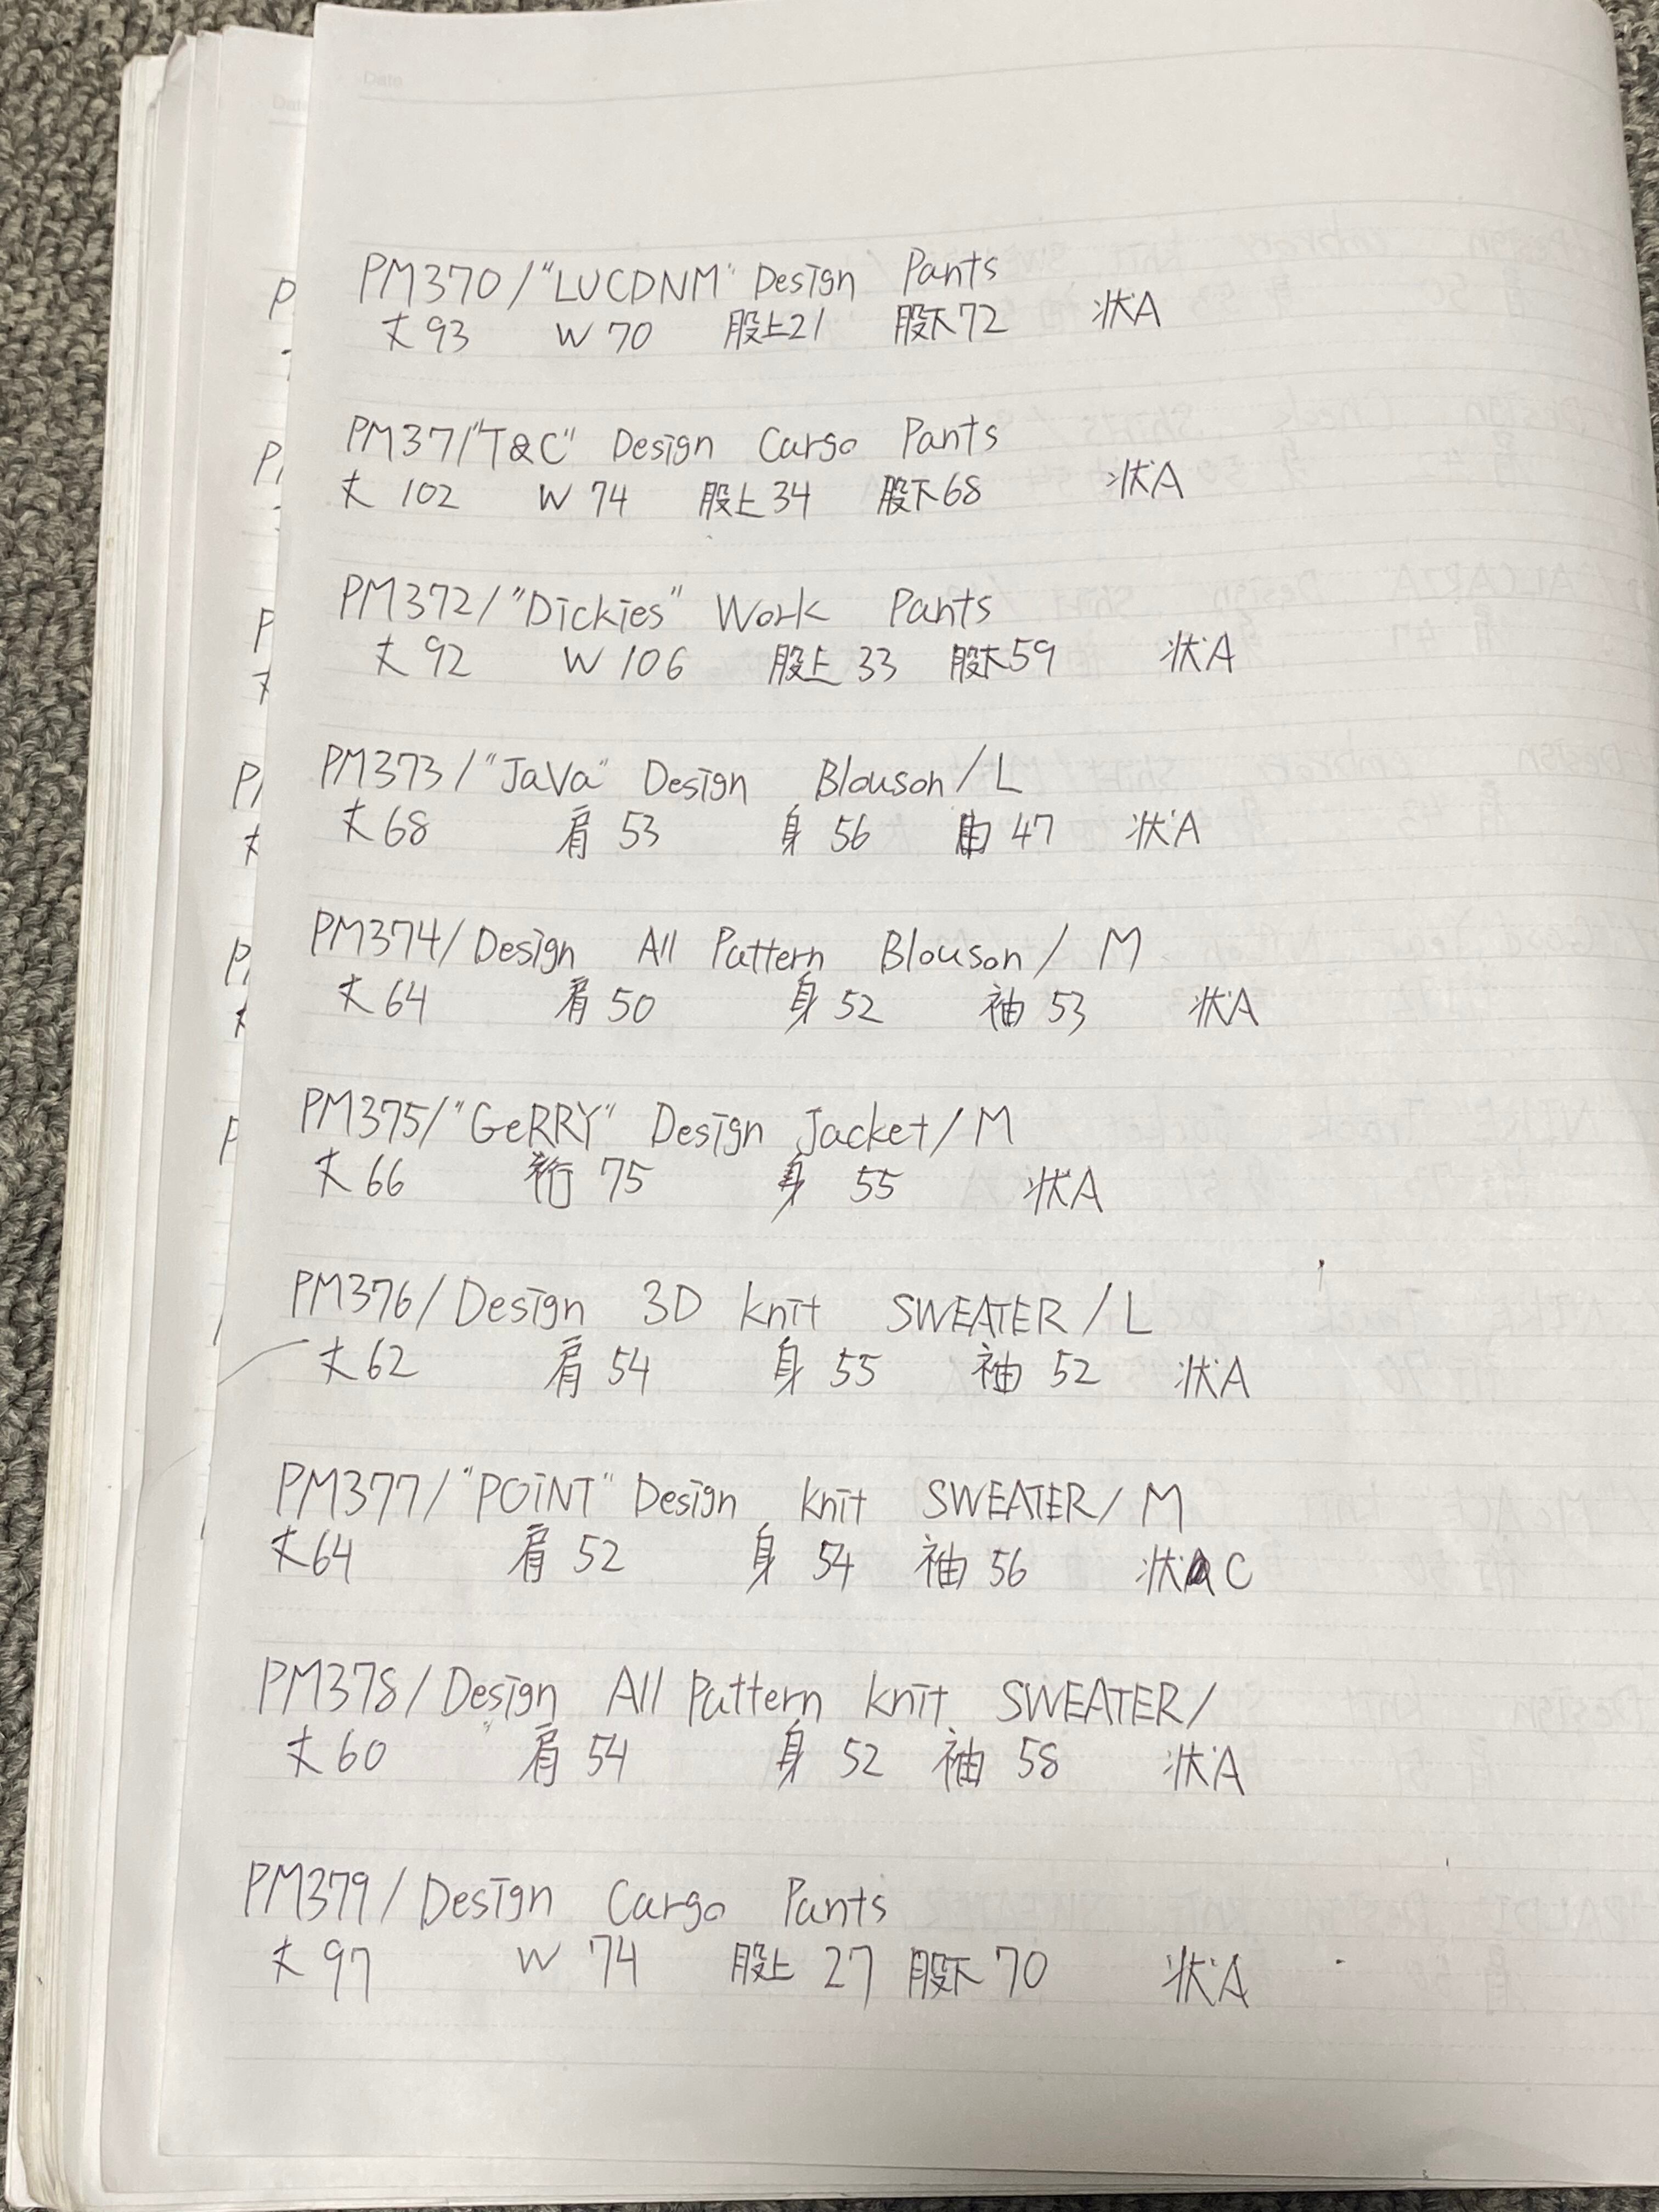 Date
PM370/"LUCDNM" Design Pants
丈93 W 70 股上21 股下72 状A
PM37/"T&C" Design Cargo Pants
丈 102 W 74 股上 34 股下68 状A
PM372/"Dickies" Work Pants
丈92 W 106 股上 33 股下59 状A
PM373/"JaVa" Design Blouson/L
丈68 肩 53 身 56 由 47 状A
PM374/Design All Pattern Blouson/ M
丈64 肩50 身 52 袖 53 状A
PM375/"GeRRY" Design Jacket/M
丈66 裄 75 身 55 状A
PM376/Design 3D knit SWEATER/L
丈62 肩 54 身 55 袖 52 状A
PM377/"POiNT" Design knit SWEATER/M
丈64 肩 52 身 54 袖 56 状C
PM378/Design All Pattern knit SWEATER/
丈60 肩 54 身 52 袖 58 状A
PM379/Design Cargo Pants
丈97 W 74 股上 27 股下 70 状A